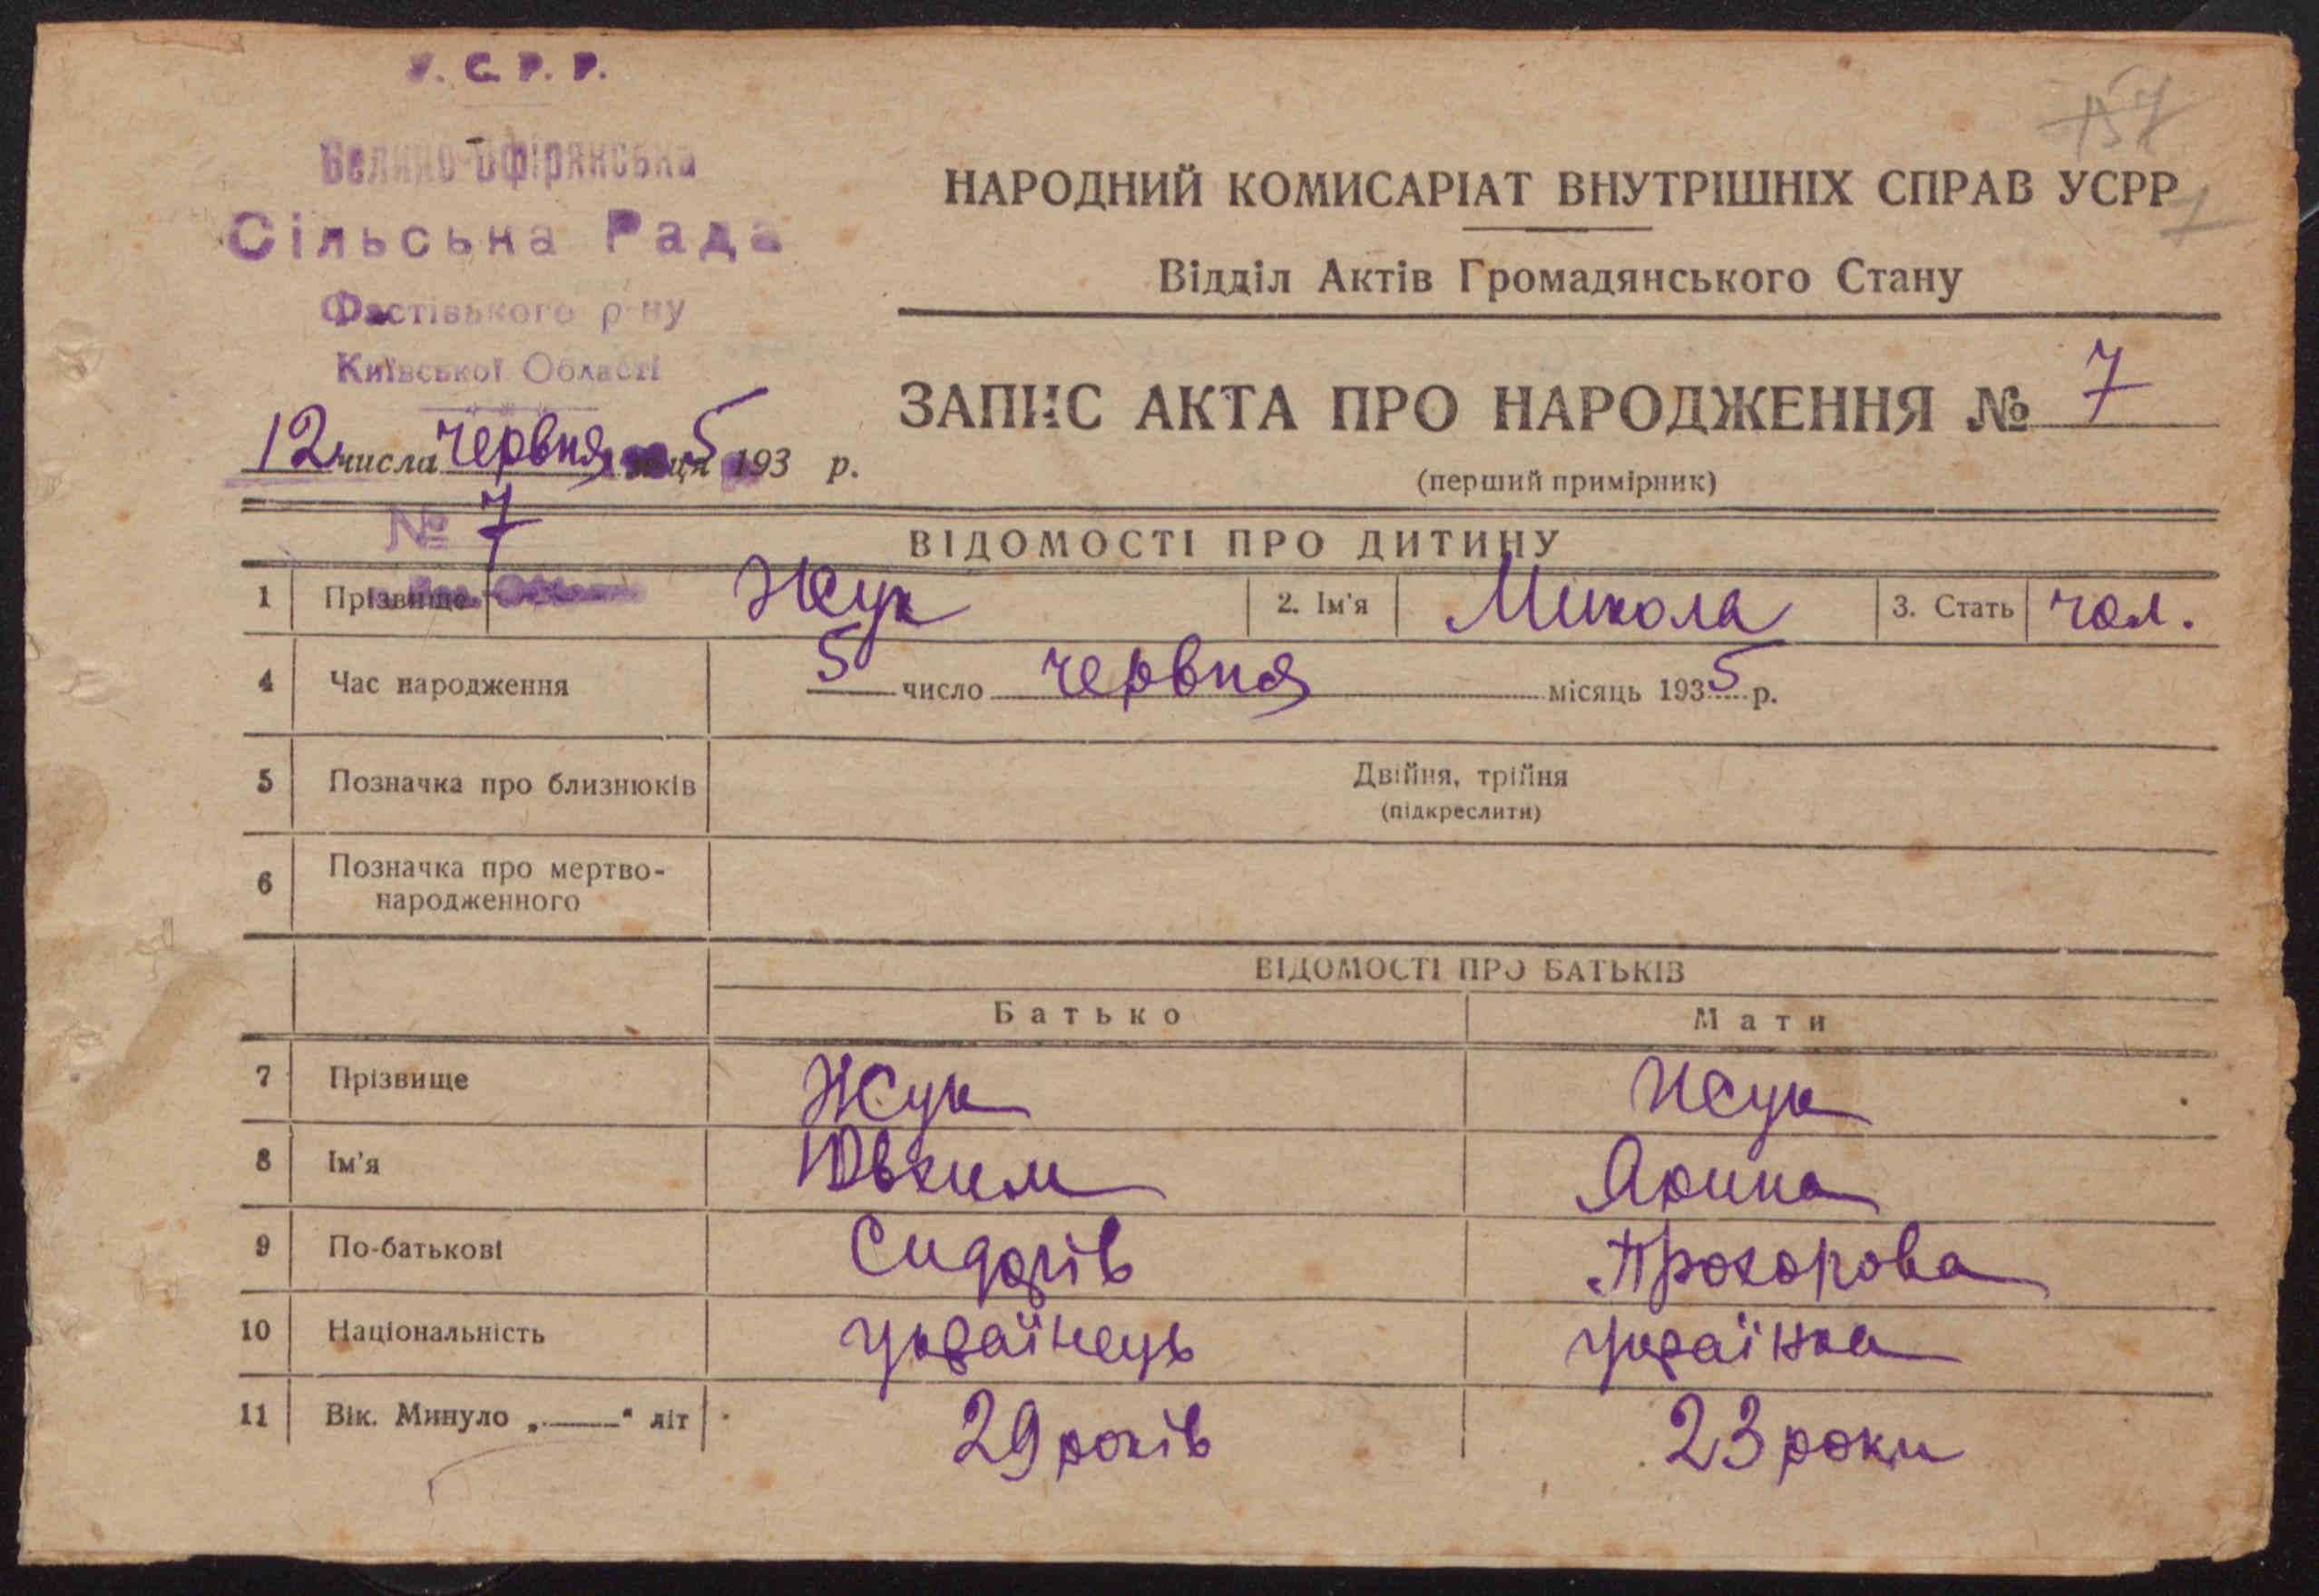 У. С. Р. Р.
Велико-Офірянська
Сільська Рада
Фастівського р-ну
Київської Області
12 числа червня місяця 1935 р.
№ 7
157
7
НАРОДНИЙ КОМИСАРІАТ ВНУТРІШНІХ СПРАВ УСРР
Відділ Актів Громадянського Стану
ЗАПИС АКТА ПРО НАРОДЖЕННЯ № 7
(перший примірник)
ВІДОМОСТІ ПРО ДИТИНУ
1 Прізвище Жук 2. Ім'я Микола 3. Стать чол.
4 Час народження 5 число червня місяць 1935 р.
5 Позначка про близнюків Двійня, трійня
(підкреслити)
6 Позначка про мертво-
народженного
ВІДОМОСТІ ПРО БАТЬКІВ
Батько Мати
7 Прізвище Жук Жук
8 Ім'я Ювхим Ярина
9 По-батькові Сидорів Прохорова
10 Національність Українець Українка
11 Вік. Минуло „——“ літ 29 років 23 роки